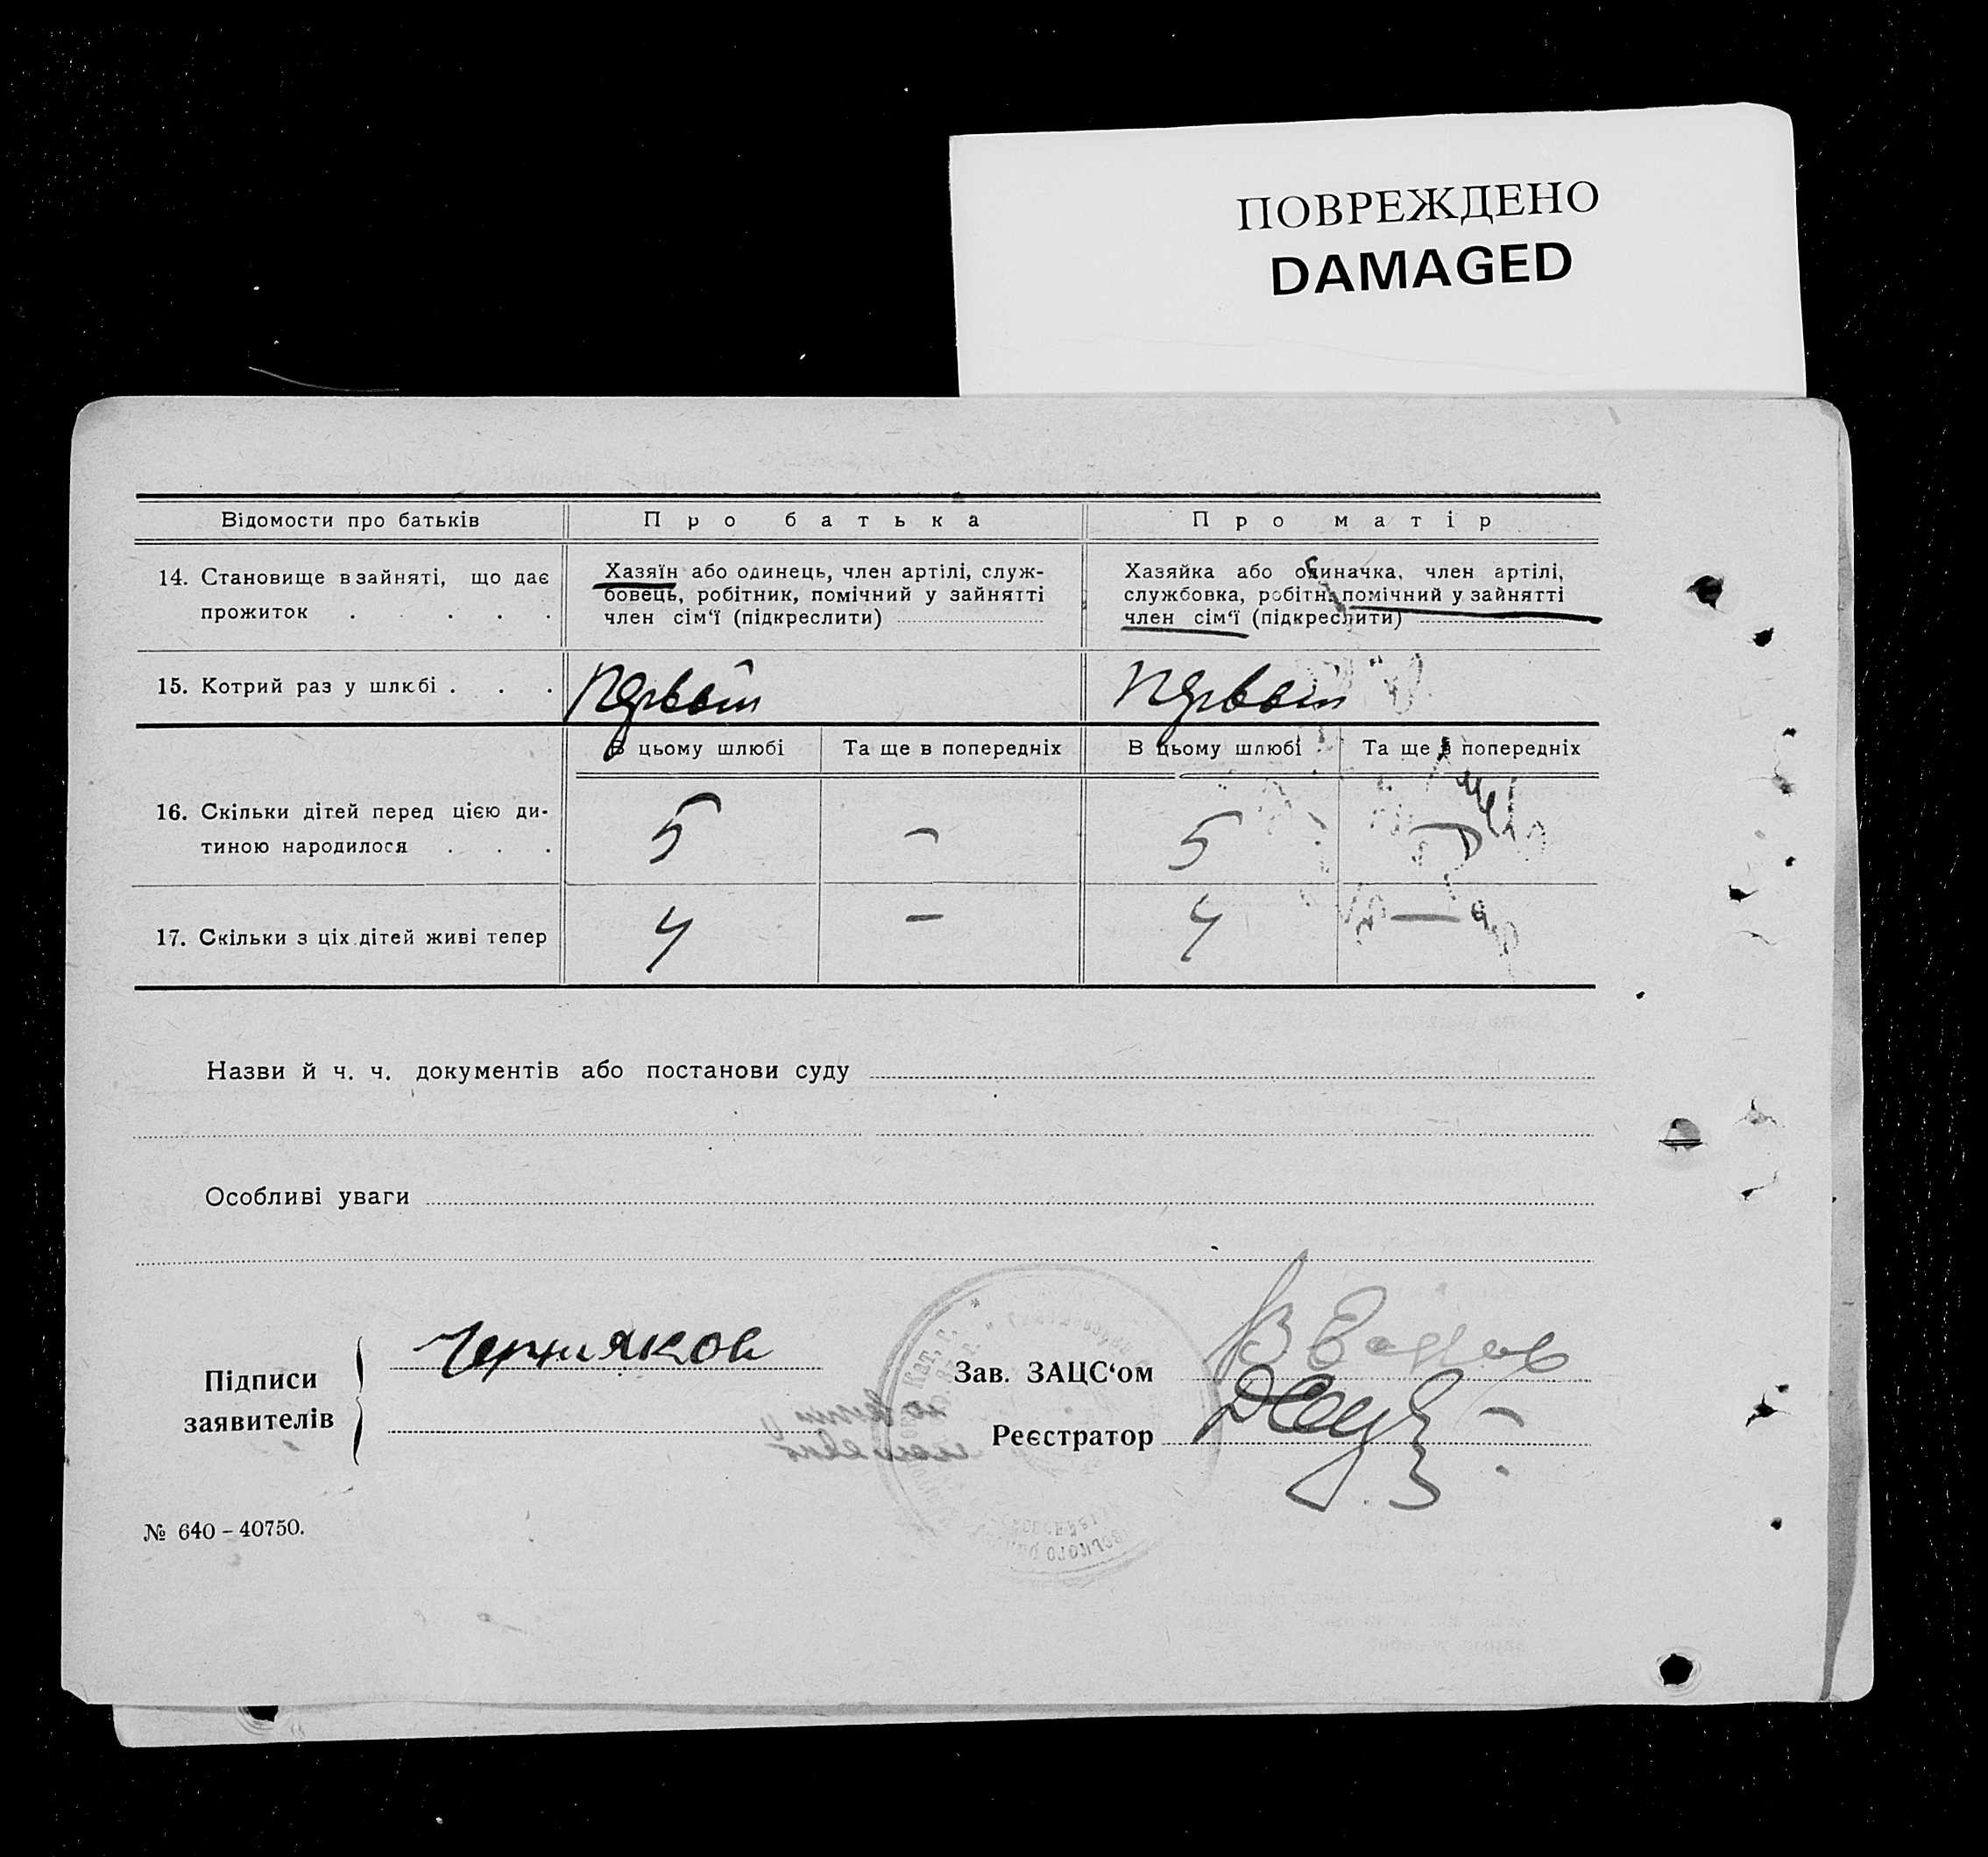 ПОВРЕЖДЕНО
DAMAGED
Відомости про батьків
Про батька
Про матір
14. Становище в зайняті, що дає
прожиток . . . . .
Хазяїн або одинець, член артілі, служ-
бовець, робітник, помічний у зайнятті
член сім‘ї (підкреслити)
Хазяйка або одиначка, член артілі,
службовка, робітн. помічний у зайнятті
член сім‘ї (підкреслити)
15. Котрий раз у шлюбі . . .
Первый
Первый
В цьому шлюбі
Та ще в попередніх
В цьому шлюбі
Та ще в попередніх
16. Скільки дітей перед цією ди-
тиною народилося . . .
5
–
5
–
17. Скільки з ціх дітей живі тепер
4
–
4
–
Назви й ч. ч. документів або постанови суду
Особливі уваги
Підписи
заявителів
Черняков
Зав. ЗАЦС‘ом
Реєстратор
№ 640 – 40750.